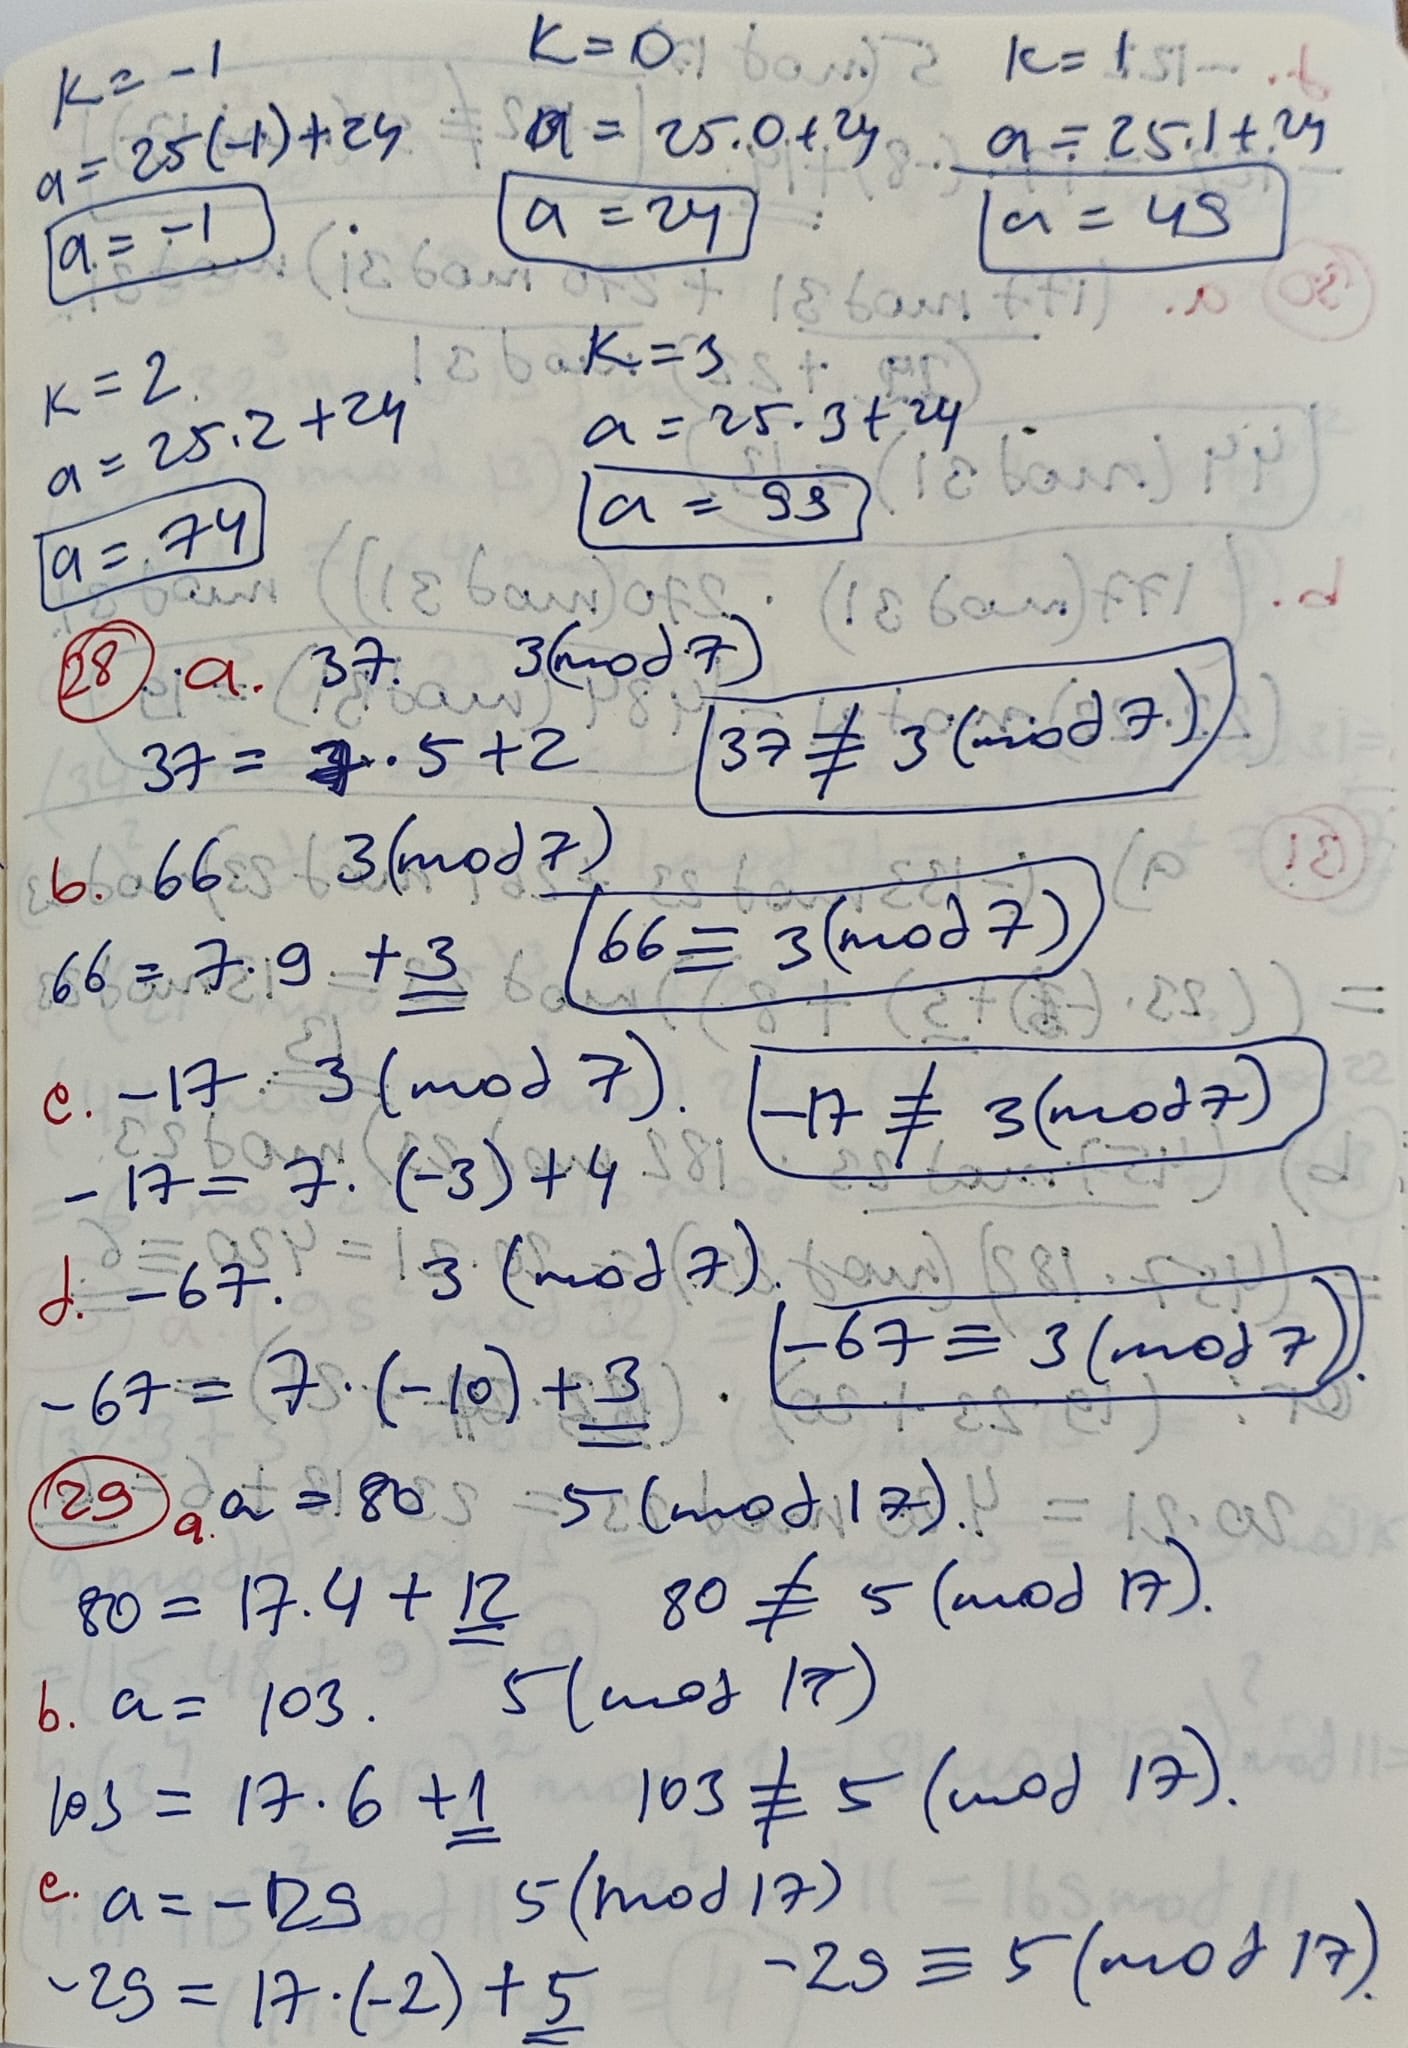 K = -1
a = 25(-1) + 24
a = -1
K = 0
a = 25.0 + 24
a = 24
K = 1
a = 25.1 + 24
a = 49
K = 2
a = 25.2 + 24
a = 74
K = 3
a = 25.3 + 24
a = 99
28 a. 37. 3(mod 7)
37 = 7.5 + 2 37 ≢ 3 (mod 7)
b. 66 3(mod 7)
66 = 7.9 + 3 66 ≡ 3(mod 7)
c. -17 3 (mod 7). -17 ≢ 3(mod 7)
-17 = 7. (-3) + 4
d. -67. 3 (mod 7).
-67 = 7. (-10) + 3. -67 ≡ 3 (mod 7).
29 a. a = 80 5 (mod 17).
80 = 17.4 + 12 80 ≢ 5 (mod 17).
b. a = 103. 5(mod 17)
103 = 17.6 + 1 103 ≢ 5 (mod 17).
c. a = -29 5(mod 17)
-29 = 17.(-2) + 5 -29 ≡ 5 (mod 17).